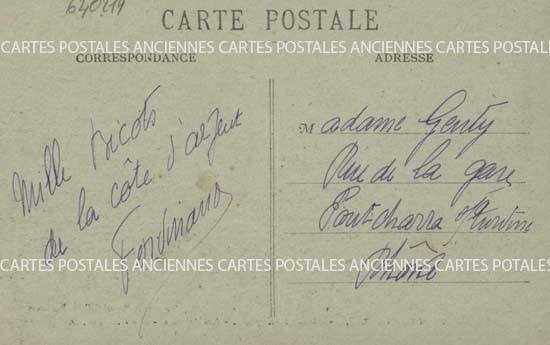 640219
CARTE POSTALE
CARTES POSTALES ANCIENNES CARTES POSTALES ANCIENNES CARTES POSTALES
CORRESPONDANCE
ADRESSE
Mille bicots
de la côte d'argent
Ferdinand
Madame Genty
Rue de la gare
Pontcharra s/ Turdine
Rhône
CARTES POSTALES ANCIENNES CARTES POSTALES ANCIENNES CARTES POTALES